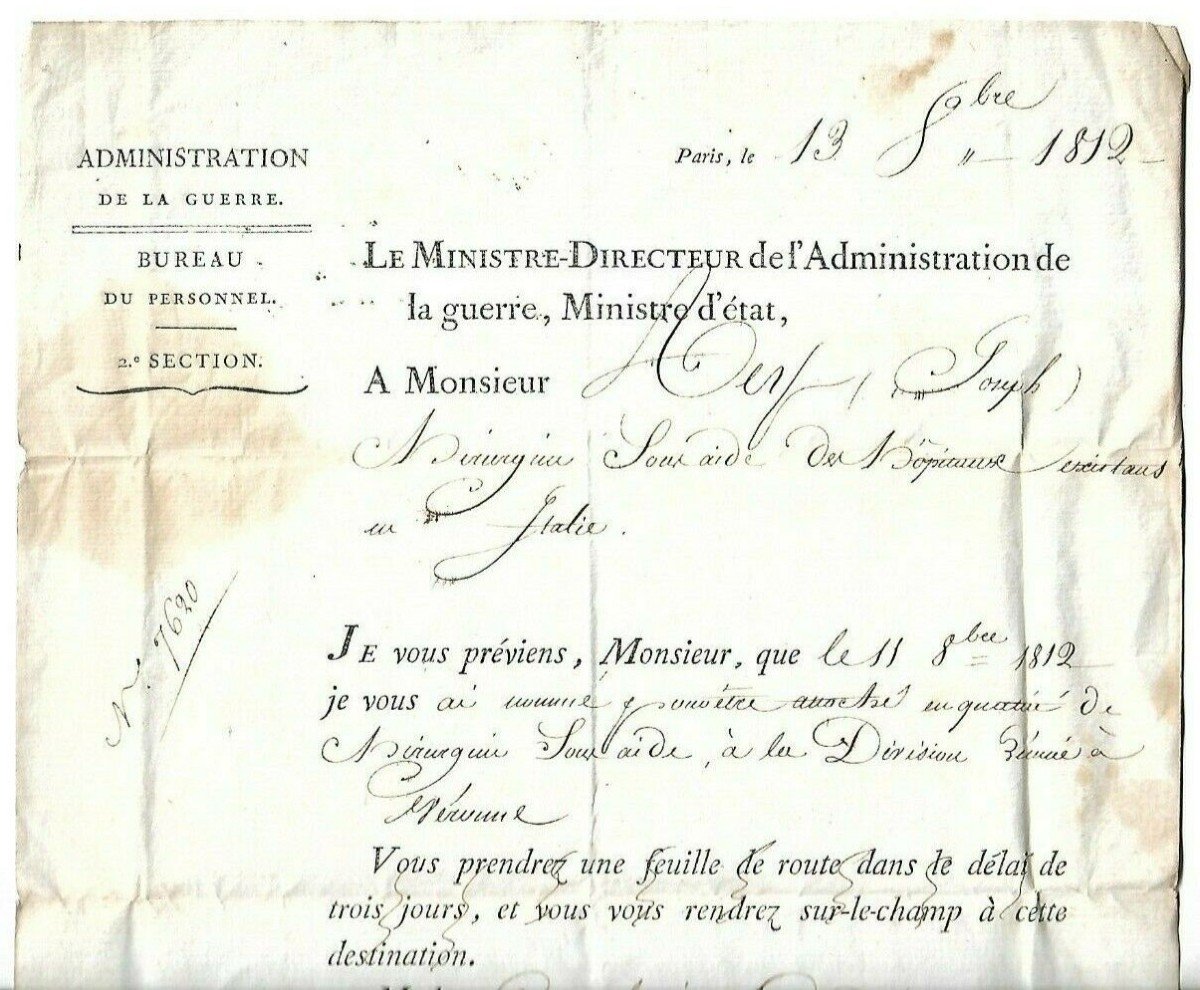 ADMINISTRATION
DE LA GUERRE.
BUREAU
DU PERSONNEL.
2.e SECTION.
Paris, le 13 8bre 1812
LE MINISTRE-DIRECTEUR de l'Administration de
la guerre, Ministre d'état,
A Monsieur (Joseph)
Chirurgien Sous aide des hôpitaux existans
en Italie.
N.° 7620
JE vous préviens, Monsieur, que le 11 8bre 1812
je vous ai nommé pour être attaché en qualité de
Chirurgien Sous aide, à la Division réunie à
Véronne
Vous prendrez une feuille de route dans le délai de
trois jours, et vous vous rendrez sur-le-champ à cette
destination.